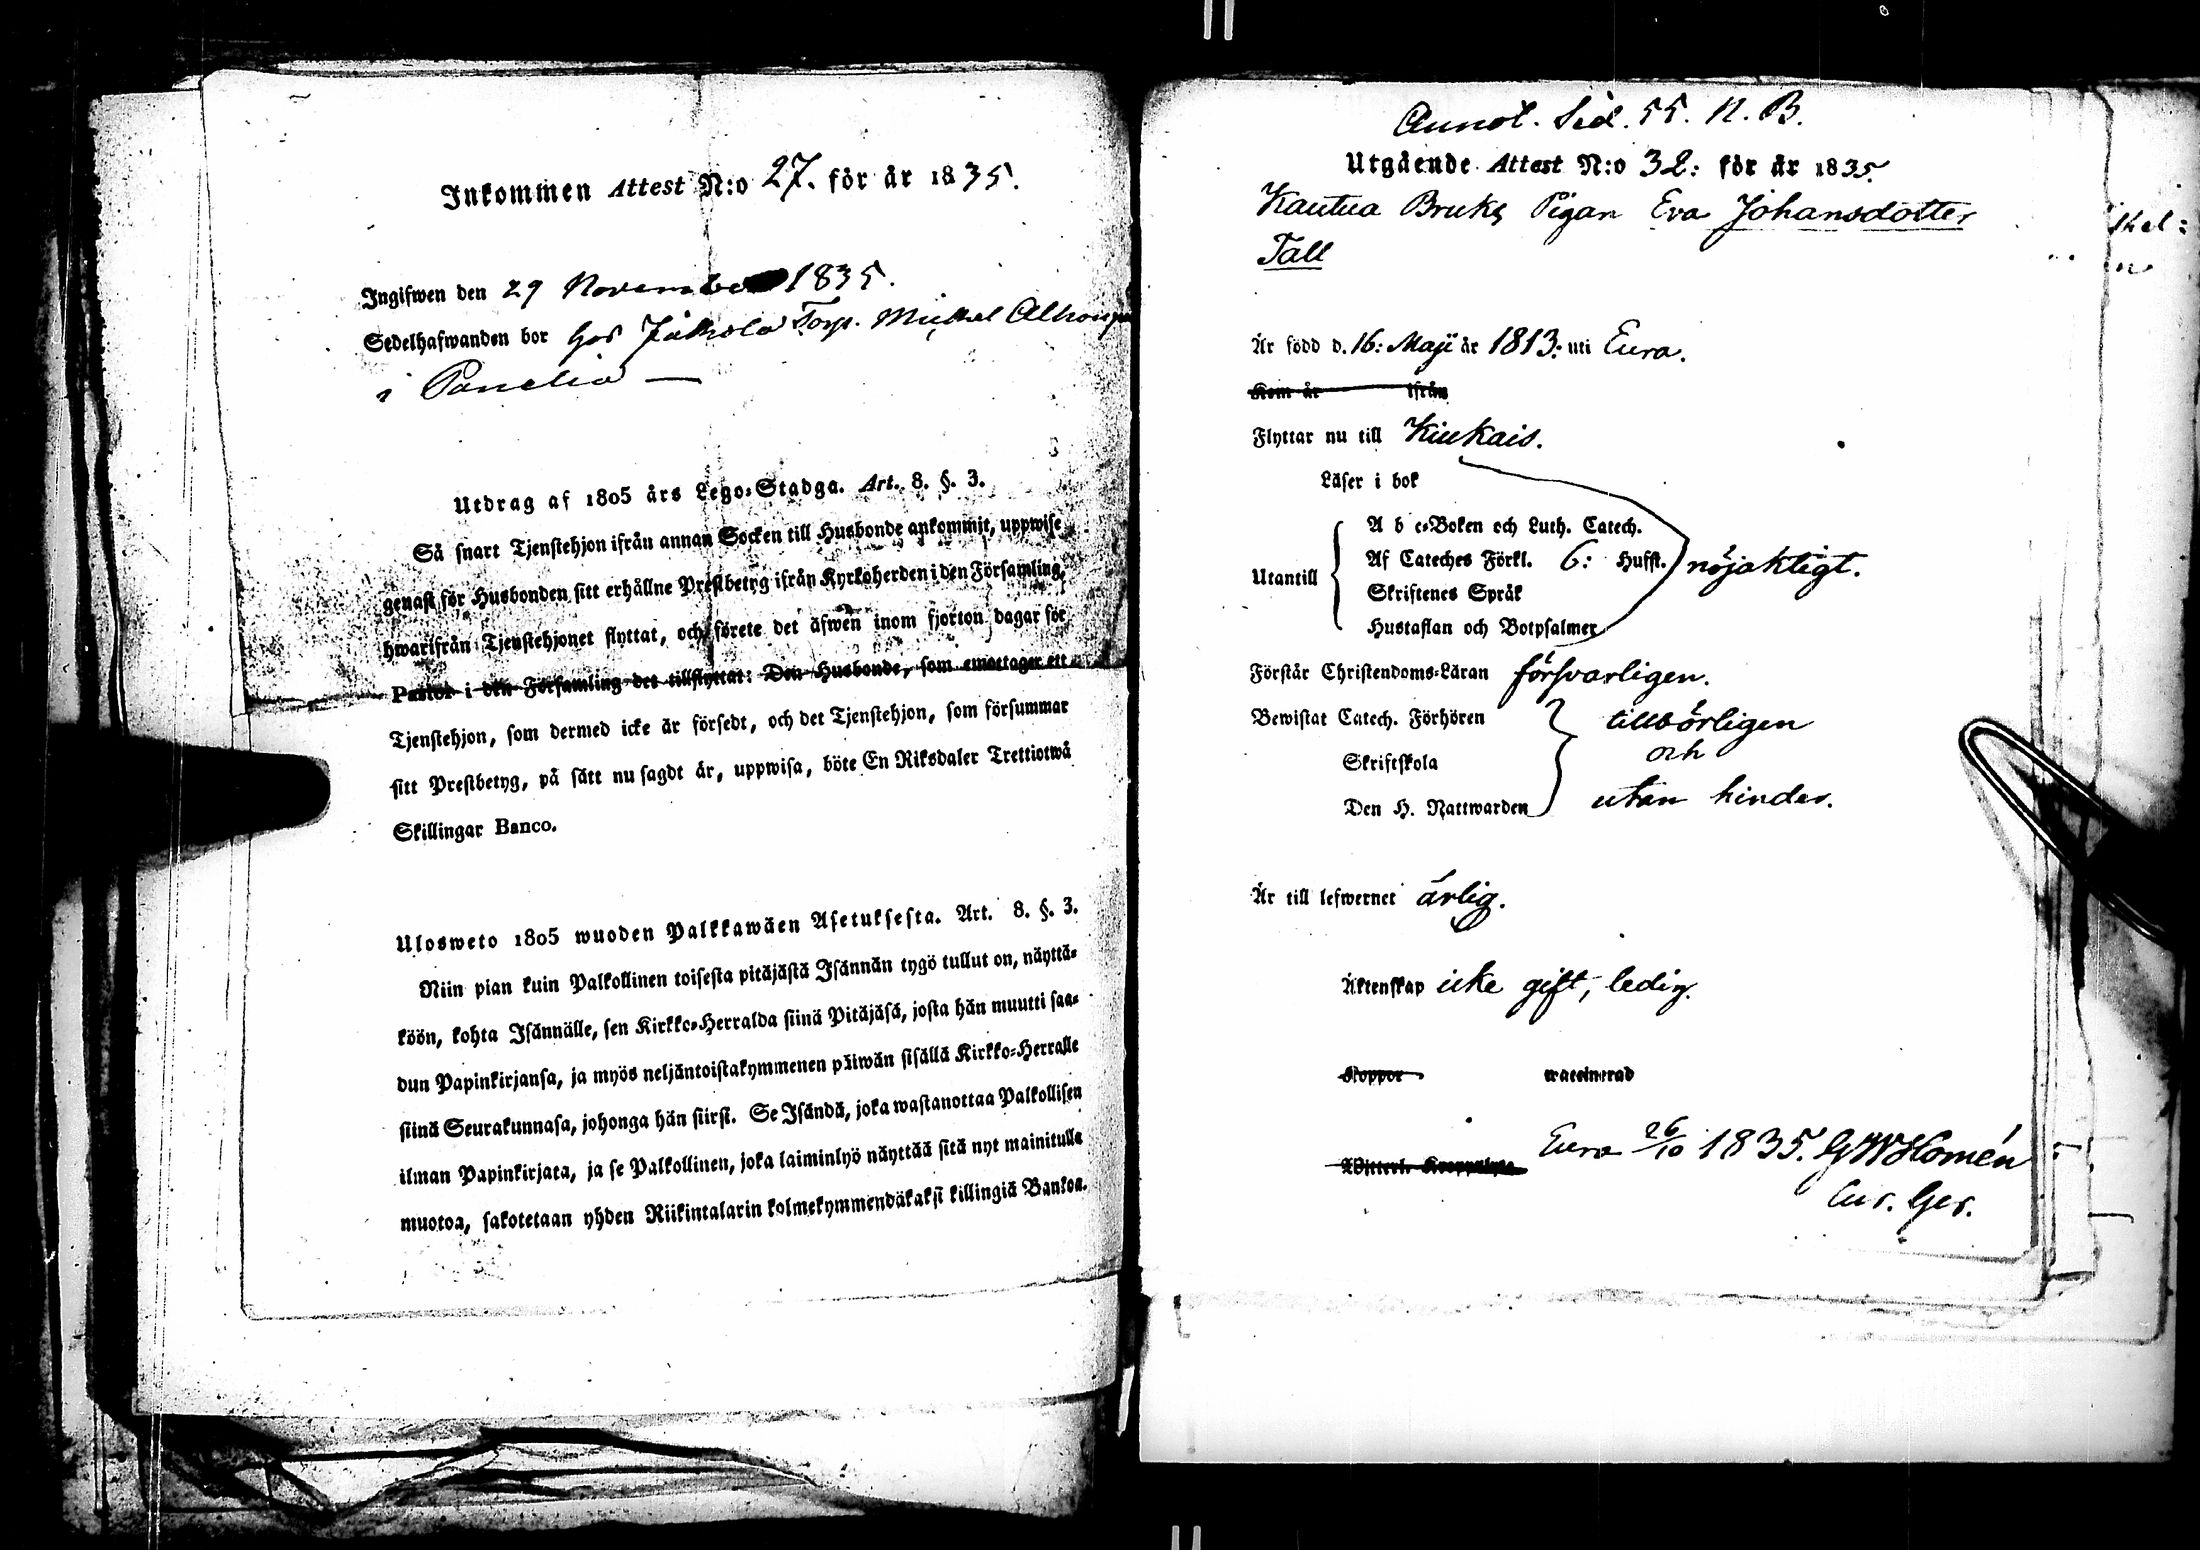 Inkommen Attest N:o 27. för år 1835.
Ingifwen den 29 November 1835.
Sedelhafwanden bor hos Torp. Michel
i Panelia —
Utdrag af 1805 års Lego-Stadga. Art. 8. §. 3.
Så snart Tjenstehjon ifrån annan Socken till Husbonde ankommit, uppwise
genast för Husbonden sitt erhållne Prestbetyg ifrån Kyrkoherden i den Församling,
hwarifrån Tjenstehjonet flyttat, och förete det äfwen inom fjorton dagar för
Pastor i den Församling det tillflyttat: Den Husbonde, som emottager ett
Tjenstehjon, som dermed icke är försedt, och det Tjenstehjon, som försummar
sitt Prestbetyg, på sätt nu sagdt är, uppwisa, böte En Riksdaler Trettiotwå
Skillingar Banco.
Ulosweto 1805 wuoden Palkkawäen Asetuksesta. Art. 8. §. 3.
Niin pian kuin Palkollinen toisesta pitäjästä Isännän tygö tullut on, näyttä-
köön, kohta Isännälle, sen Kirkko-Herralda siinä Pitäjäsä, josta hän muutti saa-
dun Papinkirjansa, ja myös neljäntoistakymmenen päiwän sisällä Kirkko-Herralle
siinä Seurakunnasa, johonga hän siirsi. Se Isändä, joka wastanottaa Palkollisen
ilman Papinkirjata, ja se Palkollinen, joka laiminlyö näyttää sitä nyt mainitulla
muotoa, sakotetaan yhden Riikintalarin kolmekymmendäkaksi killingiä Bankoa.
Annot. Sid. 55. N. B.
Utgående Attest N:o 32: för år 1835.
Kautua Bruks Pigan Eva Johansdotter
Tall
Är född d. 16: Maji år 1813: uti Eura.
Kom år ifrån
Flyttar nu till Kiukais.
Läser i bok
A b c-Boken och Luth. Catech.
Utantill Af Cateches Förkl. 6: Hufst. nöjaktigt.
Skriftenes Språk
Hustaflan och Botpsalmer
Förstår Christendoms-Läran försvarligen.
Bewistat Catech. Förhören tillbörligen
och
Skriftskola
Den H. Nattwarden utan hinder.
Är till lefwernet ärlig.
Äktenskap icke gift, ledig.
Koppor waccinerad
Eura 26/10 1835. GWHomén
Witterl. Kroppslyte
Cur. Ger.